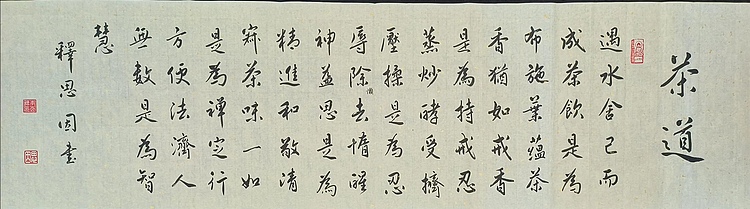 茶道
遇水舍己而
成茶飲是為
布施葉蘊茶
香猶如戒香
是為持戒忍
蒸炒酵受擠
壓揉是為忍
辱除去惰醒
神益思是為
精進和敬清
寂茶味一如
是為禪定行
方便法濟人
無數是為智
慧
釋思書